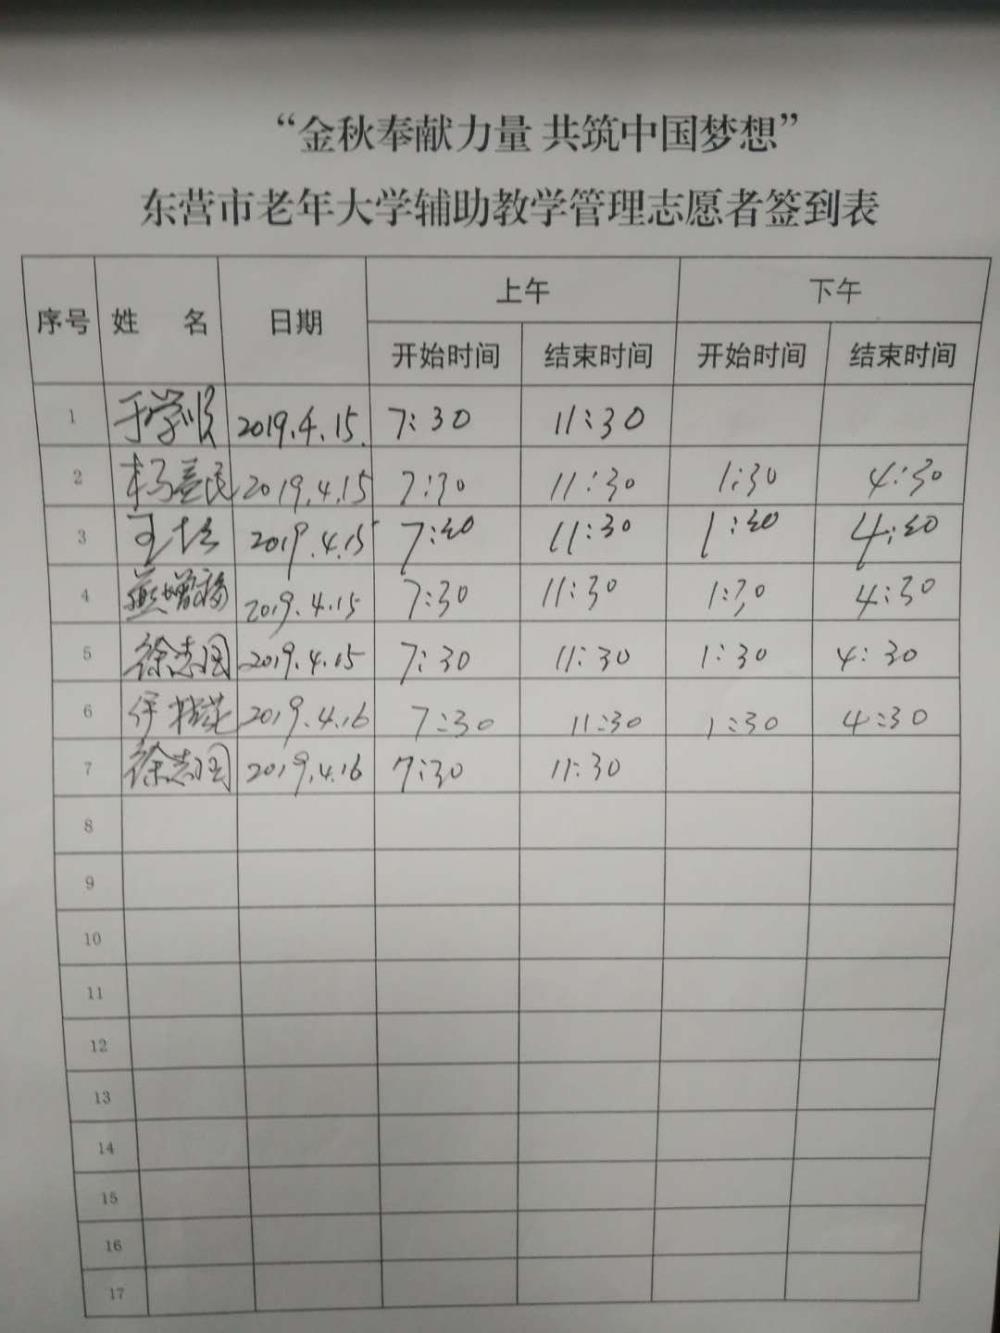 “金秋奉献力量 共筑中国梦想”
东营市老年大学辅助教学管理志愿者签到表
序号 姓 名 日期 上午 下午
开始时间 结束时间 开始时间 结束时间
1 于学顺 2019.4.15. 7:30 11:30
2 杨益民 2019.4.15 7:30 11:30 1:30 4:30
3 王 2019.4.15 7:30 11:30 1:30 4:30
4 燕增福 2019.4.15 7:30 11:30 1:30 4:30
5 徐志国 2019.4.15 7:30 11:30 1:30 4:30
6 2019.4.16 7:30 11:30 1:30 4:30
7 徐志国 2019.4.16 7:30 11:30
8
9
10
11
12
13
14
15
16
17